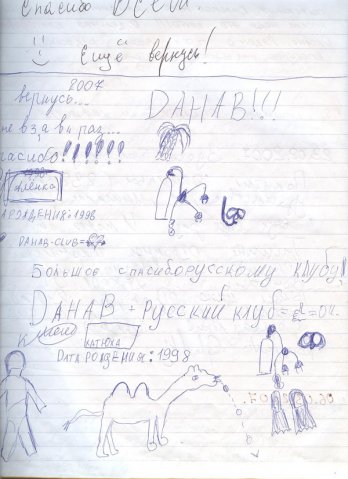 Спасибо Всем.
Ещё вернусь!
2007
вернусь...
не в 3, а в 4 раз...
DAHAB!!!
спасибо!!!!!!!
Алёнка
ДАТА РОЖДЕНИЯ: 1998
DAHAB-CLUB=
Большое спасибо русскому клубу!
DAHAB + Русский клуб =
КАТЮХА
DАТА РОЖДЕНИЯ: 1998